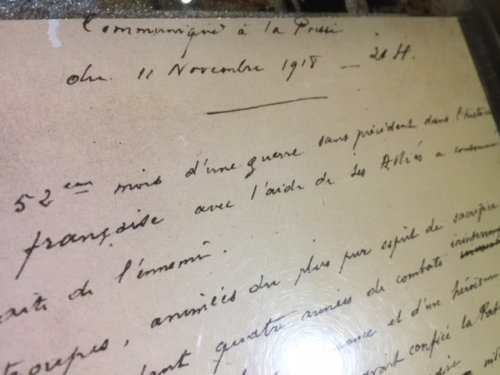 Communiqué à la Presse
du 11 Novembre 1918 — 21 H.
52 eme mois d'une guerre sans précédent dans l'histoire
française avec l'aide de ses Alliés a consommé
de l'ennemi.
troupes, animées du plus pur esprit de sacrifice
quatre années de combats
et d'un héroïsme
avait confié la